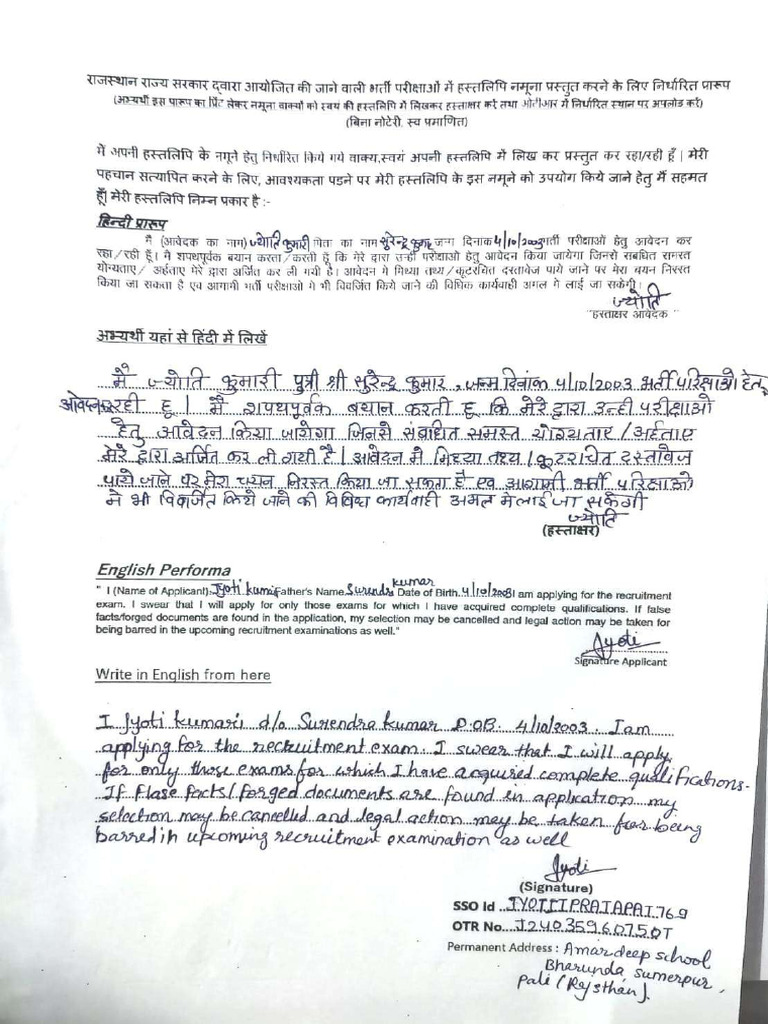 राजस्थान राज्य सरकार द्वारा आयोजित की जाने वाली भर्ती परीक्षाओं में हस्तलिपि नमूना प्रस्तुत करने के लिए निर्धारित प्रारूप
(अभ्यर्थी इस प्रारूप का प्रिंट लेकर नमूना वाक्यों को स्वयं की हस्तलिपि में लिखकर हस्ताक्षर करें तथा ओटीआर में निर्धारित स्थान पर अपलोड करें)
(बिना नोटेरी, स्व प्रमाणित)
मैं अपनी हस्तलिपि के नमूने हेतु निर्धारित किये गये वाक्य,स्वयं अपनी हस्तलिपि में लिख कर प्रस्तुत कर रहा/रही हूँ | मेरी
पहचान सत्यापित करने के लिए, आवश्यकता पडने पर मेरी हस्तलिपि के इस नमूने को उपयोग किये जाने हेतु मैं सहमत
हूँ| मेरी हस्तलिपि निम्न प्रकार है :-
हिन्दी प्रारूप
मैं (आवेदक का नाम) ज्योति कुमारी पिता का नाम सुरेन्द्र कुमार जन्म दिनांक 4/10/2003 भर्ती परीक्षाओं हेतु आवेदन कर
रहा/रही हूँ। मै शपथपूर्वक बयान करता/करती हूँ कि मेरे द्वारा उन्ही परीक्षाओं हेतु आवेदन किया जायेगा जिनसे संबधित समस्त
योग्यताए/ अर्हताए मेरे द्वारा अर्जित कर ली गयी है। आवेदन मे मिथ्या तथ्य/कूटरचित दस्तावेज पाये जाने पर मेरा चयन निरस्त
किया जा सकता है एवं आगामी भर्ती परीक्षाओ मे भी विवर्जित किये जाने की विधिक कार्यवाही अमल मे लाई जा सकेगी।
ज्योति
"हस्ताक्षर आवेदक "
अभ्यर्थी यहां से हिंदी में लिखें
मै ज्योति कुमारी पुत्री श्री सुरेन्द्र कुमार, जन्म दिनांक 4/10/2003 भर्ती परिक्षाओ हेतु
रही हू | मैं शपथपूर्वक बयान करती हू कि मेरे द्वारा उन्ही परीक्षाओ
हेतु आवेदन किया जायेगा जिनसे संबधित समस्त योग्यताए/अर्हताए
मेरे द्वारा अर्जित कर ली गयी है | आवेदन मे मिथ्या तथ्य/कूटरचित दस्तावेज
पाये जाने पर मेरा चयन निरस्त किया जा सकता है एव आगामी भर्ती परिक्षाओ
मे भी विवर्जित किये जाने की विविध कार्यवाही अमल मे लाई जा सकेगी
ज्योति
(हस्ताक्षर)
English Performa
" I (Name of Applicant) Jyoti kumari Father's Name Surendra kumar Date of Birth 4/10/2003 I am applying for the recruitment
exam. I swear that I will apply for only those exams for which I have acquired complete qualifications. If false
facts/forged documents are found in the application, my selection may be cancelled and legal action may be taken for
being barred in the upcoming recruitment examinations as well."
Jyoti
Signature Applicant
Write in English from here
I Jyoti kumari d/o Surendra kumar D.OB. 4/10/2003. I am
applying for the recruitment exam. I swear that I will apply
for only those exams for which I have acquired complete qualifications.
If flase facts/ forged documents are found in application my
selection may be cancelled and legal action may be taken for being
barred in upcoming recruitment examination as well
Jyoti
(Signature)
SSO Id JYOTIIPRAJAPAT769
OTR No. J24035960750T
Permanent Address : Amardeep school
Bharunda, sumerpur,
pali (Rajsthan).